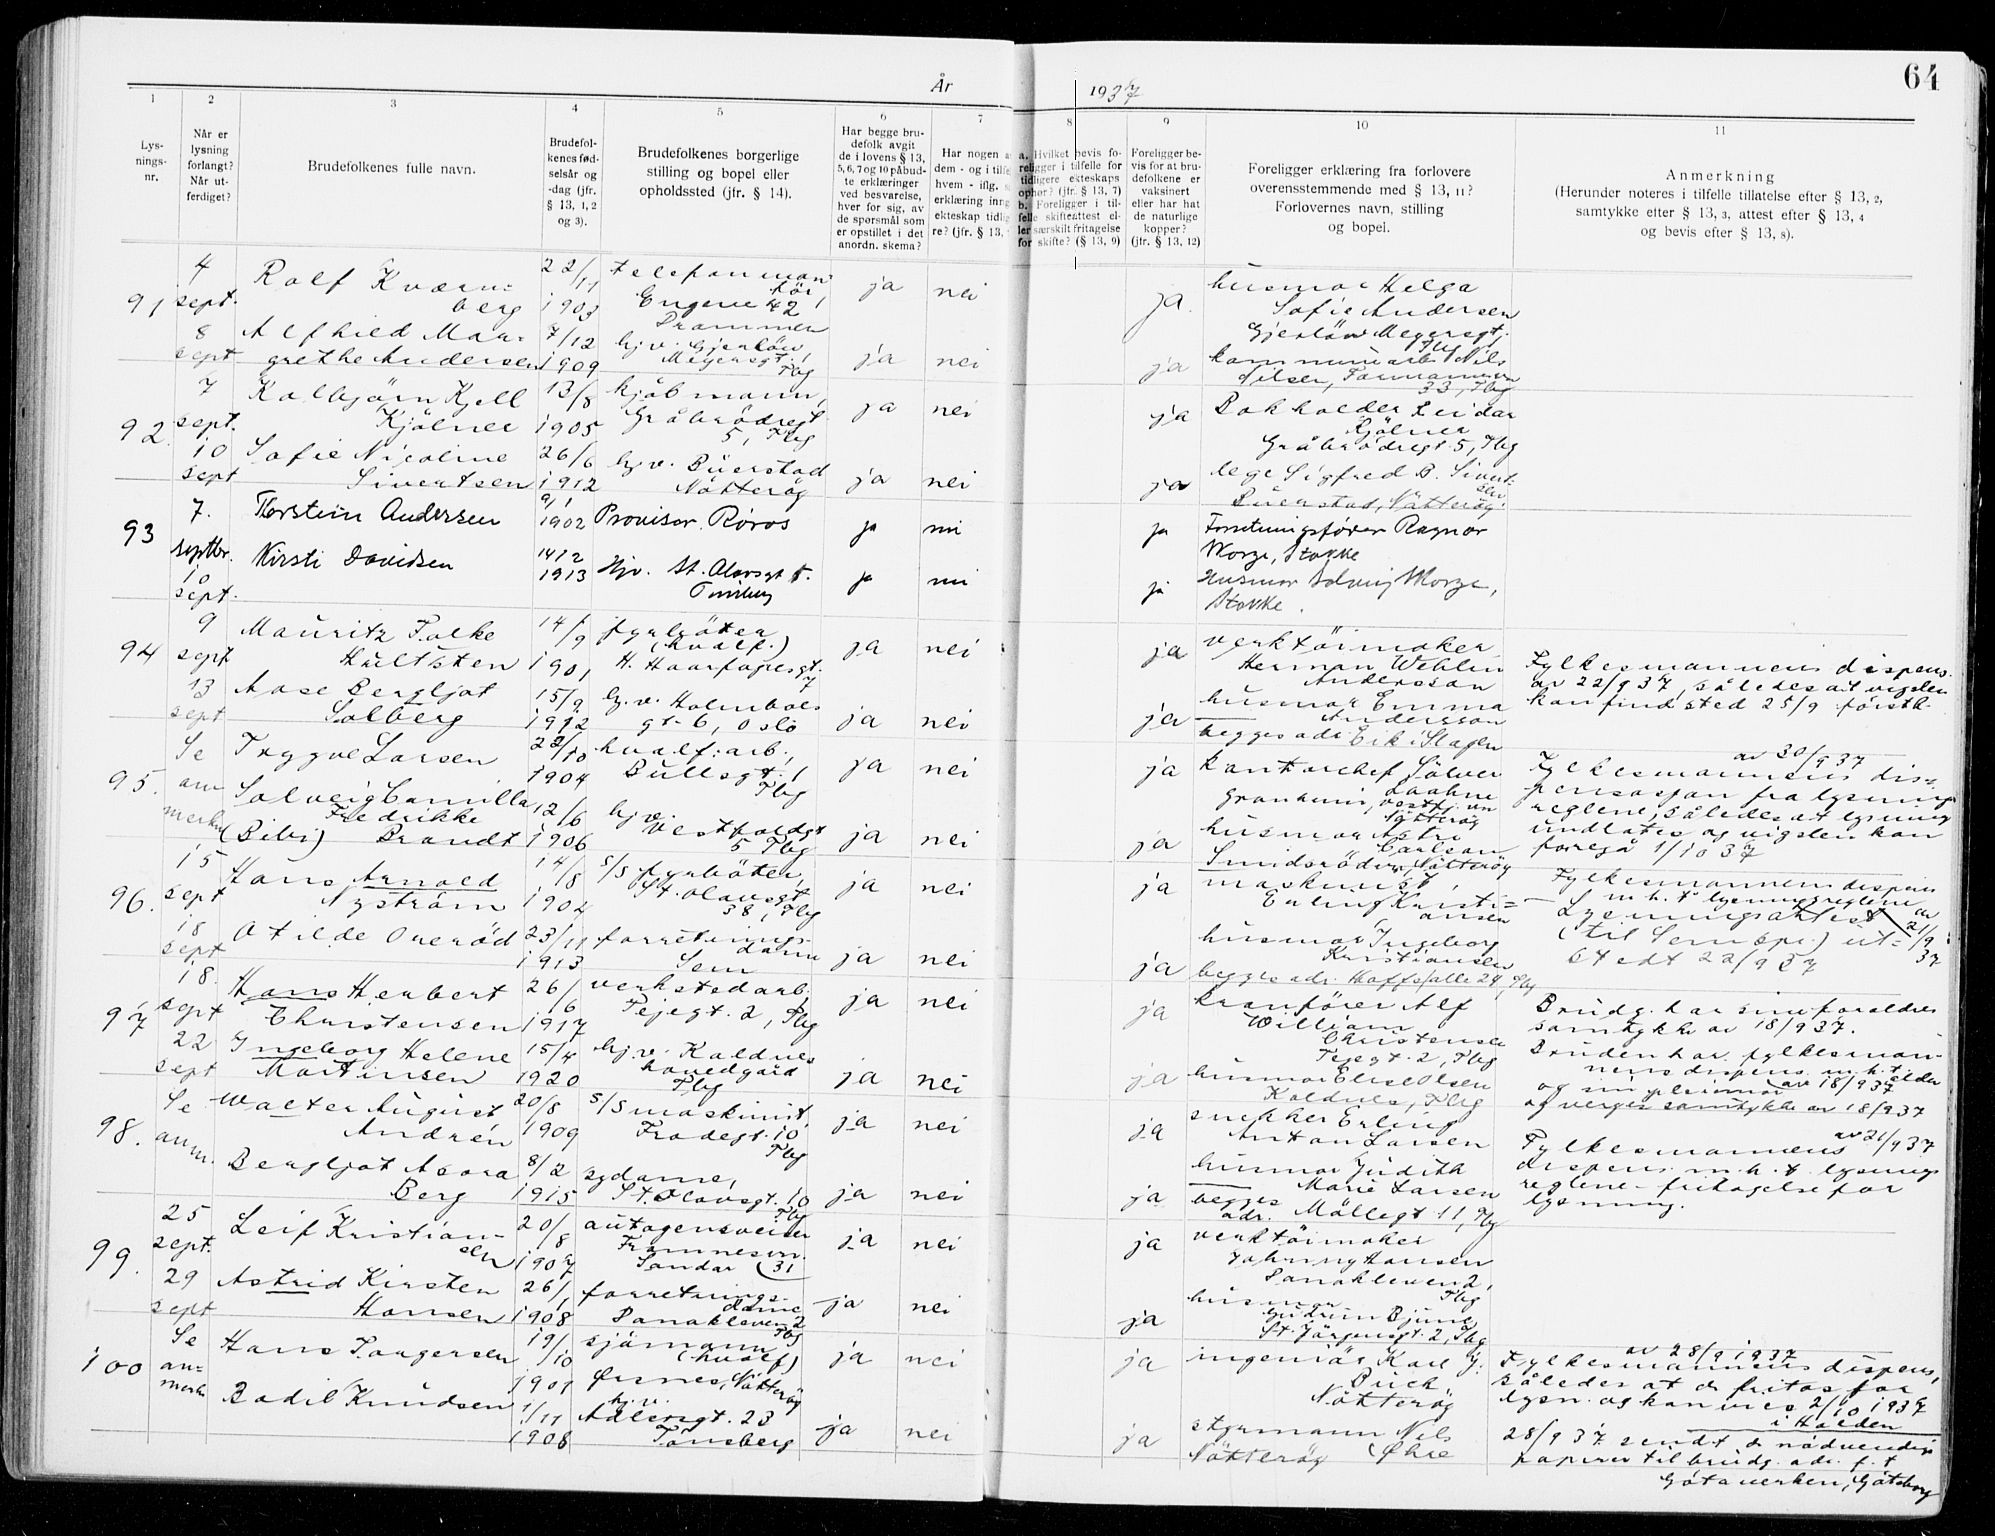 År 1937
64
1 2 3 4 5 6 7 8 9 10 11
Lys-
nings-
nr.
Når er
lysning
forlangt?
Når ut-
ferdiget?
Brudefolkenes fulle navn.
Brudefol-
kenes fød-
selsår og
-dag (jfr.
§ 13, 1, 2
og 3).
Brudefolkenes borgerlige
stilling og bopel eller
opholdssted (jfr. § 14).
Har begge bru-
defolk avgit
de i lovens § 13,
5, 6, 7 og 10 påbud-
te erklæringer
ved besvarelse,
hver for sig, av
de spørsmål som
er opstillet i det
anordn. skema?
Har nogen a
dem - og i tilfe
hvem - iflg.
erklæring inng
ekteskap tidlig
re? (jfr. § 13,
a. Hvilket bevis fo-
religger i tilfelle for
tidligere ekteskaps
ophør? (jfr. § 13, 7)
b. Foreligger i til-
felle skifteattest el-
ler særskilt fritagelse
for skifte? (§ 13, 9)
Foreligger be-
vis for at bru-
defolkene er
vaksinert
eller har hat
de naturlige
kopper?
(jfr. § 13, 12)
Foreligger erklæring fra forlovere
overensstemmende med § 13, 11?
Forlovernes navn, stilling
og bopel.
Anmerkning
(Herunder noteres i tilfelle tillatelse efter § 13, 2,
samtykke efter § 13, 3, attest efter § 13, 4
og bevis efter § 13, 8).
91
4 sept.
Rolf Kværn-
berg
22/11 1903
telefonmon-
tör,
Engene 42
Drammen
ja nei ja.
husmor Helga
Sofie Andersen
Gjerlöw Meyersgt.
Tbg
8 sept
Alfhild Mar-
grethe Andersen
7/12 1909
hjv. Gjerlöw
Meyersgt. 1
Tbg
ja nei ja
kommunearb. Nils
Nilsen, Farmannsvn
33, Tbg
92.
7 sept.
Kolbjörn Kjell
Kjölner
13/8 1905
kjöbmann,
Gråbrödregt.
5, Tbg
ja nei ja
Bokholder Reidar
Kjölner
Gråbrödregt. 5, Tbg
10 sept
Sofie Nicoline
Sivertsen
26/6 1912
hjv. Buerstad
Nötteröy
ja nei ja
lege Sigfred B. Sivert-
sen
Buerstad, Nötteröy.
93
7. septbr.
Thorstein Andersen
9/1 1902
Provisor. Røros
ja nei ja
Forretningsfører Ragnar
Skorge, Stokke
10 sept.
Kirsti Davidsen
14/12 1913
Hjv. St. Olavsgt 5.
Tønsberg
ja nei ja
Husmor Solveig Skorge,
Stokke.
94
9 sept
Mauritz Folke
Hultsten
14/9 1901
fyrböter
(hvalf.)
H. Haarfagresgt.
7
ja nei ja
verktöimaker
Herman Wehlin
Andersson
Fylkesmannens dispens.
av 22/9 37, således at vigslen
kan finde sted 25/9 förstk.
13 sept
Aase Bergljot
Solberg
15/9 1912
hjv. Holmboes
gt. 6, Oslo
ja nei ja
husmor Emma
Andersson
begges adr. Eik i Slagen
95.
Se anmerkn
Trygve Larsen
22/10 1904
hvalf.arb.,
Bullsgt. 1
Tbg
ja nei ja
kontorchef Sölver
Laahne
Granheim, vestfj. vn
Nötteröy
av 30/9 37
Fylkesmannens dis-
pensasjon fra lysnings
reglene, således at lysning
undlates og vigslen kan
foregå 1/10 37
Solveig Camilla
Fredrikke
(Bibi) Brandt
12/6 1906
hjv.
Vestfoldgt
5 Tbg
ja nei ja
husmor Astri
Carlson
Smidsröd, Nötteröy
96.
15 sept
Hans Arnold
Nyström
14/8 1904
s/s fyrböter,
St. Olavsgt
38, Tbg
ja nei ja
maskinist,
Erling Kristi-
ansen
Fylkesmannens dispens
m.h.t. lysningsreglene av
21/9 37
Lysningsattest
(til Sem spr.) ut-
stedt 22/9 37
18 sept
Otilde Overöd
23/11 1913
forretnings-
dame
Sem
ja nei ja
husmor Ingeborg
Kristiansen
begges adr. Hoffs alle 24, Tbg
97
18. sept
Hans Herbert
Christensen
26/6 1917
verkstedarb.
Fejegt. 2, Tbg
ja nei ja
kranförer Alf
William
Christensen
Fejegt. 2, Tbg
Brudg. har sine foreldres
samtykke av 18/9 37.
22 sept
Ingeborg Helene
Martinsen
15/4 1920
hjv. Kaldnes
hovedgård
Tbg
ja nei ja
husmor Elise Olsen
Kaldnes, Tbg
Bruden har fylkesman-
nens dispens. m.h.t. alder
av 18/9 37
og sin
og verges samtykke av 18/9 37
98.
Se anm.
Walter August
Andrén
20/8 1909
s/s maskinist,
Frodegt. 10
Tbg
ja nei ja
snekker Erling
Anton Larsen
av 21/9 37
Fylkesmannens
dispens. m.h.t. lysnings
reglene - fritagelse for
lysning.
Bergljot Asora
Berg
8/2 1915
sydame,
St. Olavsgt. 10
Tbg
ja nei ja
husmor Judith
Marie Larsen
begges
adr. Möllegt 11, Tbg
99.
25 sept.
Leif Kristian-
sen
20/8 1907
autogensveiser
Framnesvn.
Sandar 31
ja nei ja
verktöimaker
Johnny Hansen
Banakleven 2,
Tbg
29 sept
Astrid Kirsten
Hansen
26/1 1908
forretnings-
dame
Banakleven 2
Tbg
ja nei ja
husmor
Gudrun Bjune
St. Jörgensgt. 2, Tbg
100
Se anmerkn
Hans Torgersen
19/10 1901
sjömann
(hvalf)
Ørsnes, Nötteröy
ja nei ja
ingeniör Karl G.
Buch
Nötteröy
av 28/9 1937
Fylkesmannens dispens,
således at de fritas for
lysn. og kan vies 2/10 1937
i Halden
Bodil Knudsen
1/11 1908
hjv.
Adlersgt. 23
Tönsberg
ja nei ja
styrmann Nils
Øhre
Nötteröy
28/9 37 sendt de nödvendige
papirer til brudg. adr. f.t
Götaverken, Göteborg